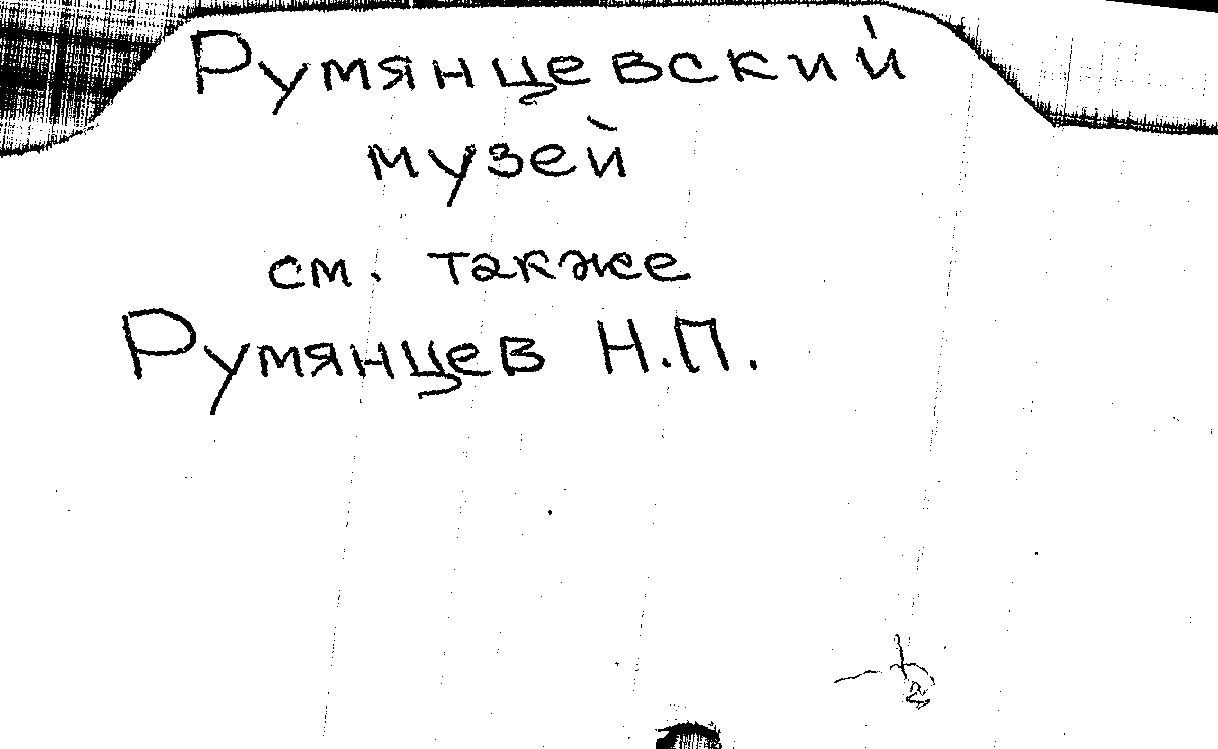 Румянцевский
музей
см. также
Румянцев Н.П.